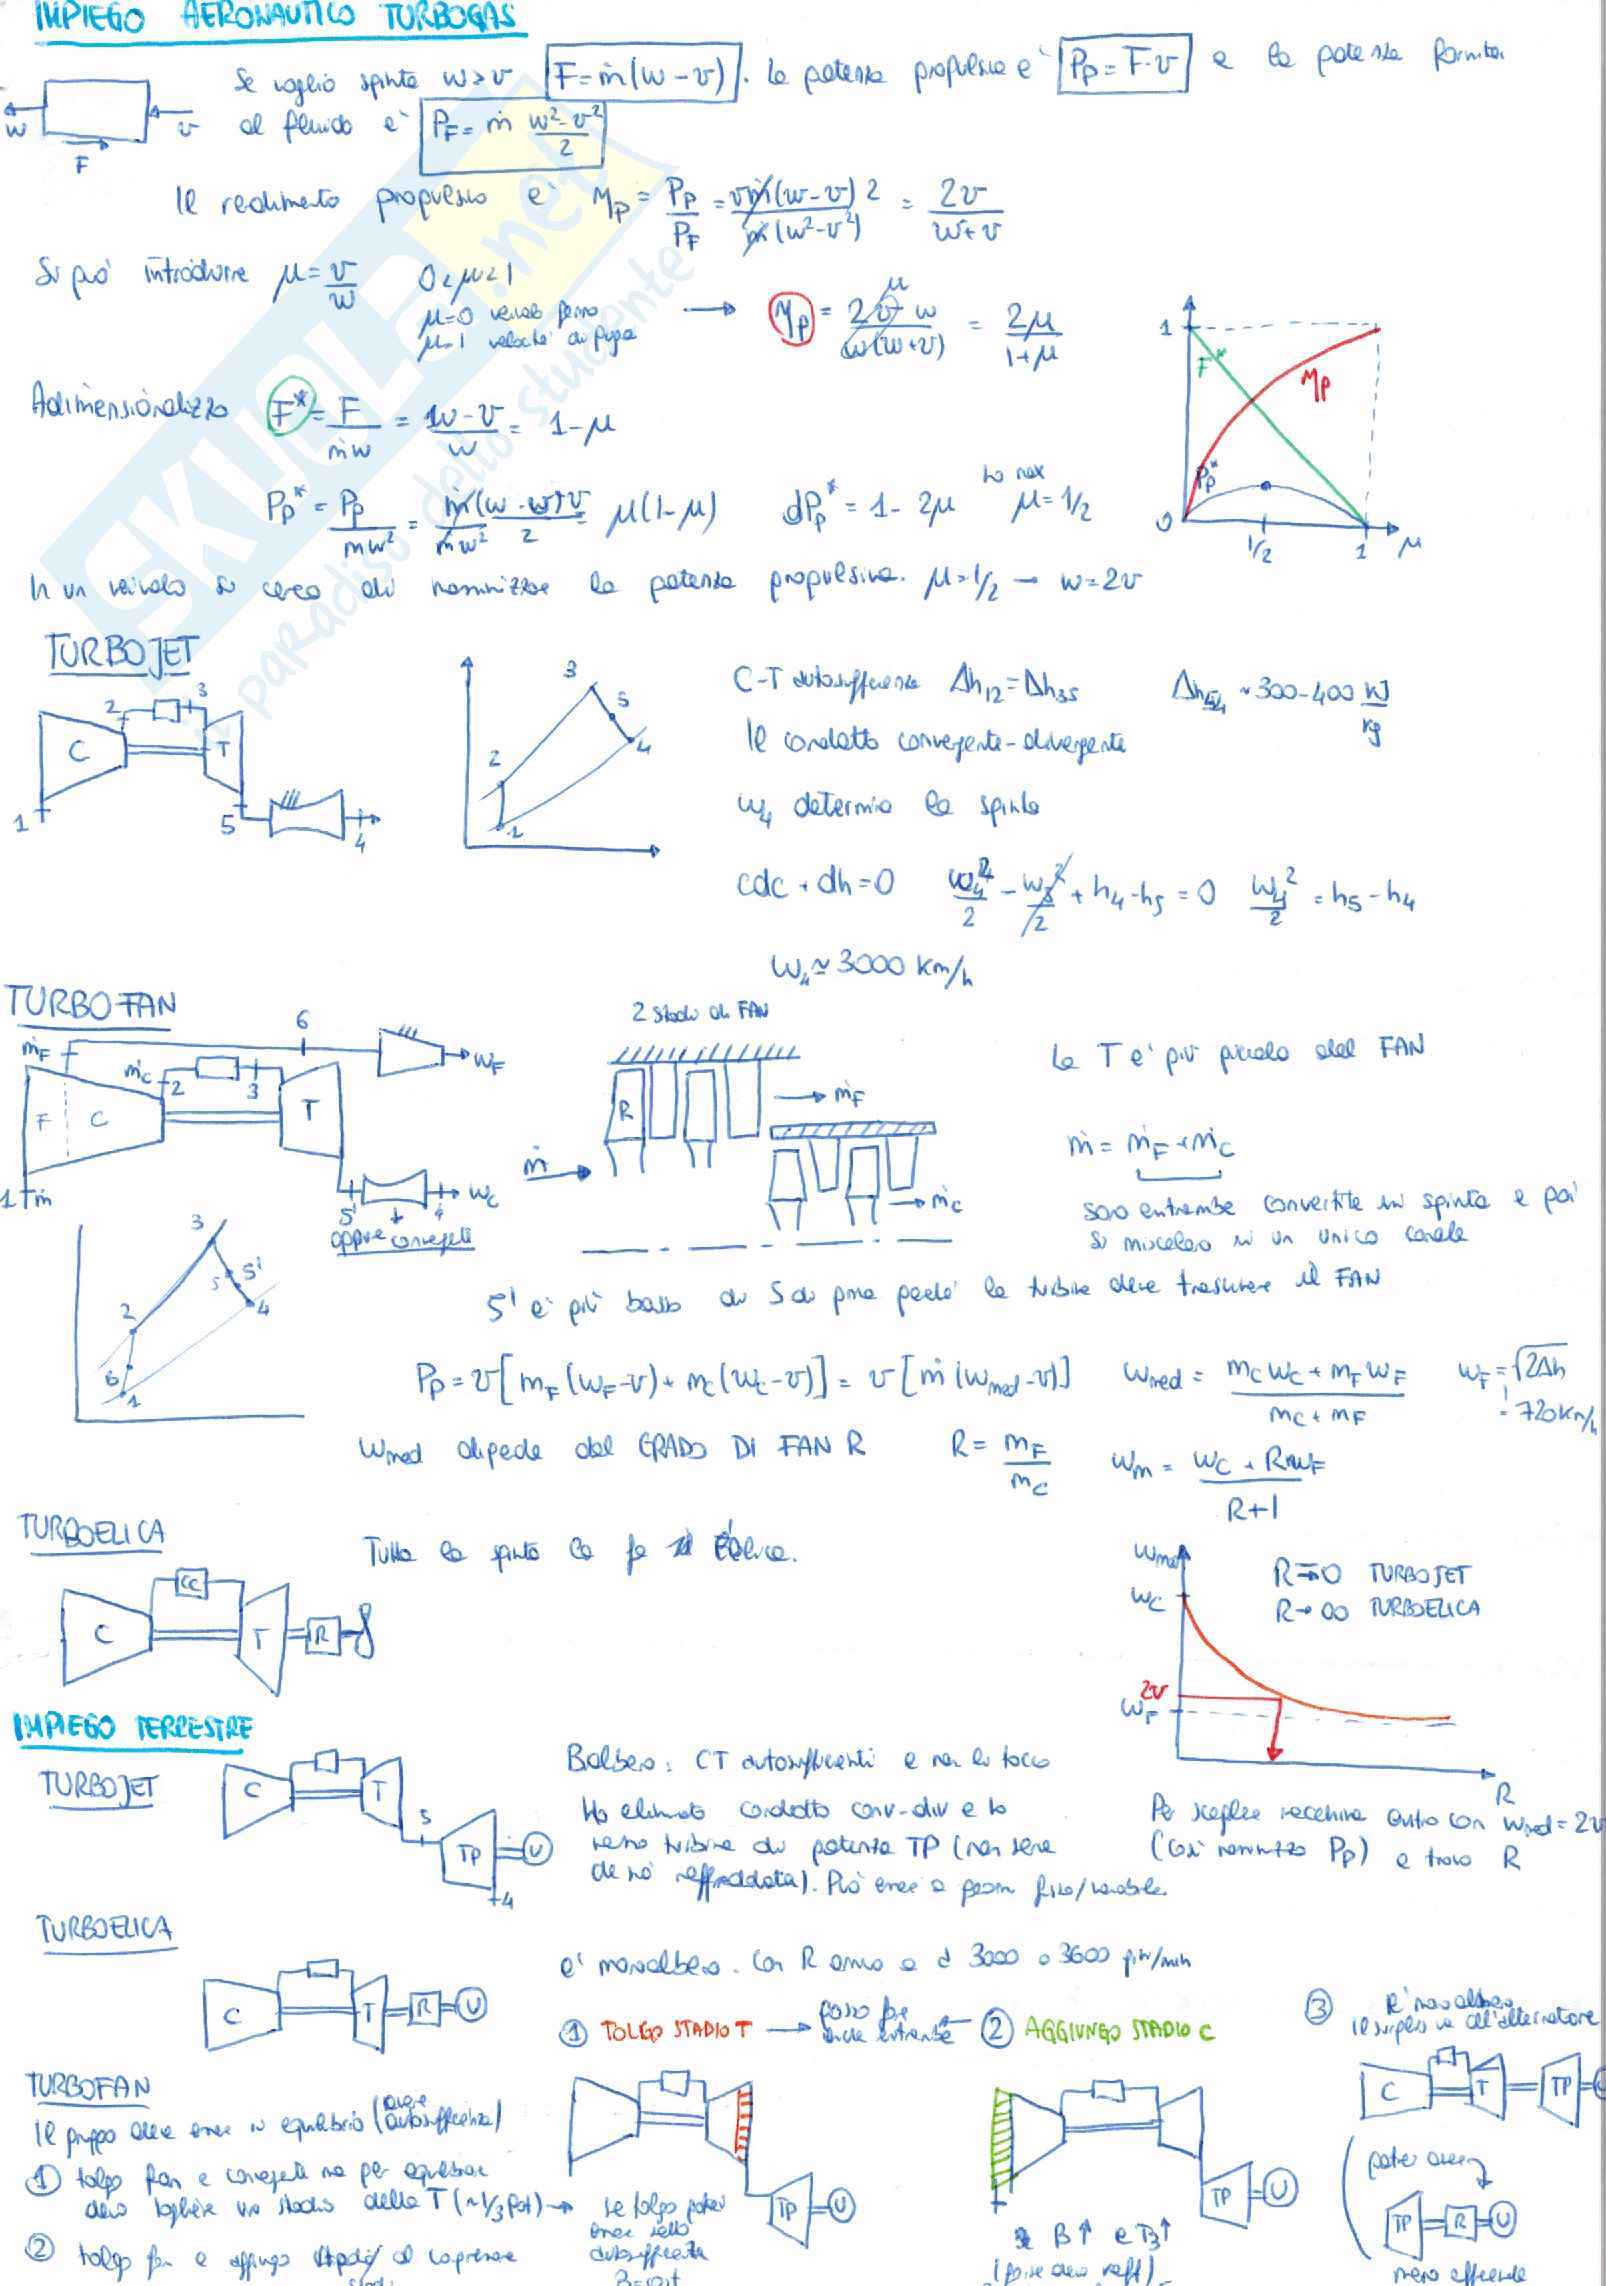 IMPIEGO AERONAUTICO TURBOGAS
Se voglio spinta w>v F=ṁ(w-v). La potenza propulsiva è Pp=F·v e la potenza fornita
al fluido è PF=ṁ (w²-v²)/2
w v F
Il rendimento propulsivo è ηp = Pp/PF = vṁ(w-v)2/ṁ(w²-v²) = 2v/(w+v)
Si può introdurre μ=v/w 0<μ<1
μ=0 veicolo fermo
μ=1 velocità di fuga
→ ηp = 2v w/w(w+v) = 2μ/(1+μ)
μ
1 F* ηp Pp* 0 1/2 1 μ
Adimensionalizzo F*=F/ṁw = (w-v)/w = 1-μ
Pp* = Pp/ṁw² = μ(1-μ) dPp* = 1-2μ ho max μ=1/2
In un veicolo si cerca di massimizzare la potenza propulsiva. μ=1/2 → w=2v
TURBOJET
C T 1 2 3 5 4
1 2 3 5 4
C-T autosufficiente Δh12=Δh35 Δh54 ~300-400 kJ/kg
Il condotto convergente-divergente
w4 determina la spinta
cdc + dh=0 w4²/2 - w5²/2 + h4-h5 = 0 w4²/2 = h5-h4
w4≈3000 km/h
TURBOFAN
ṁF 6 wF
ṁc 2 3
F C T
1 ṁ 5' 4 wc
oppure convergente
2 stadi di FAN
R ṁF
ṁ ṁc
La T è più piccola del FAN
ṁ = ṁF + ṁc
sono entrambe convertite in spinta e poi
si miscelano in un unico canale
1 6 2 3 5 5' 4
5' è più basso di 5 di prima perché la turbina deve trascinare il FAN
Pp = v[mF(wF-v)+mc(wc-v)] = v[ṁ(wmed-v)] wmed = (mc wc + mF wF)/(mc+mF) wF=√2Δh
= 720 km/h
wmed dipende dal GRADO DI FAN R R = mF/mc wm = (wc + RwF)/(R+1)
TURBOELICA
Tutta la spinta la fa l'Elica.
C CC T R
wmed wc 2v wF R
R→0 TURBOJET
R→∞ TURBOELICA
Per scegliere macchina entro con wmed=2v
(così massimizzo Pp) e trovo R
IMPIEGO TERRESTRE
TURBOJET
C T 5 TP U 4
Bialbero: CT autosufficienti e non la tocco
Ho eliminato condotto conv-div e ho
messo turbina di potenza TP (non serve
che sia raffreddata). Può essere a geom fissa/variabile.
TURBOELICA
C T R U
è monoalbero. Con R arrivo a 3000 o 3600 giri/min
① TOLGO STADIO T → posso fare
anche entrambe ← ② AGGIUNGO STADIO C
③ È monoalbero
il surplus va all'alternatore
C T TP U
TURBOFAN
Il gruppo deve essere in equilibrio (avere autosufficienza)
① tolgo fan e convergente ma per equilibrare
devo togliere uno stadio della T (~1/3 pot) →
se tolgo potrei
essere sotto
autosufficienza
β=cost
TP U
② tolgo fan e aggiungo stadi al compressore
stadi
TP U
β↑ e T3↑
TP R U
meno efficiente